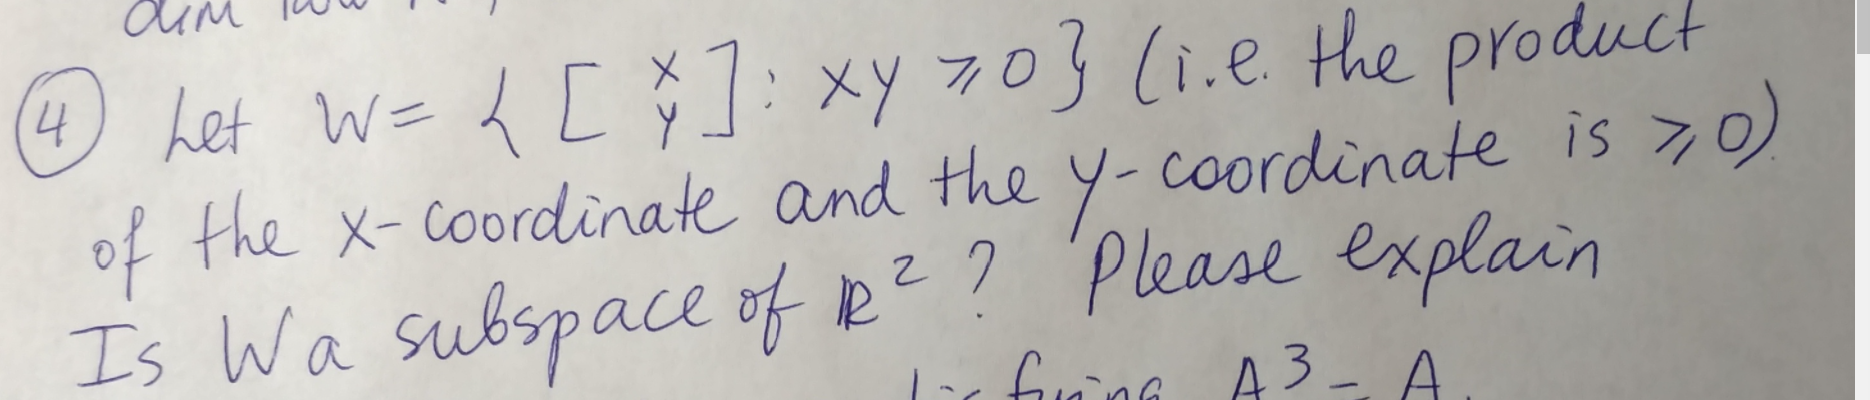 ④ Let W = { [ x y ] : xy ⩾ 0 } (i.e. the product
of the x-coordinate and the y-coordinate is ⩾ 0).
Is W a subspace of ℝ² ? Please explain
A³ = A.